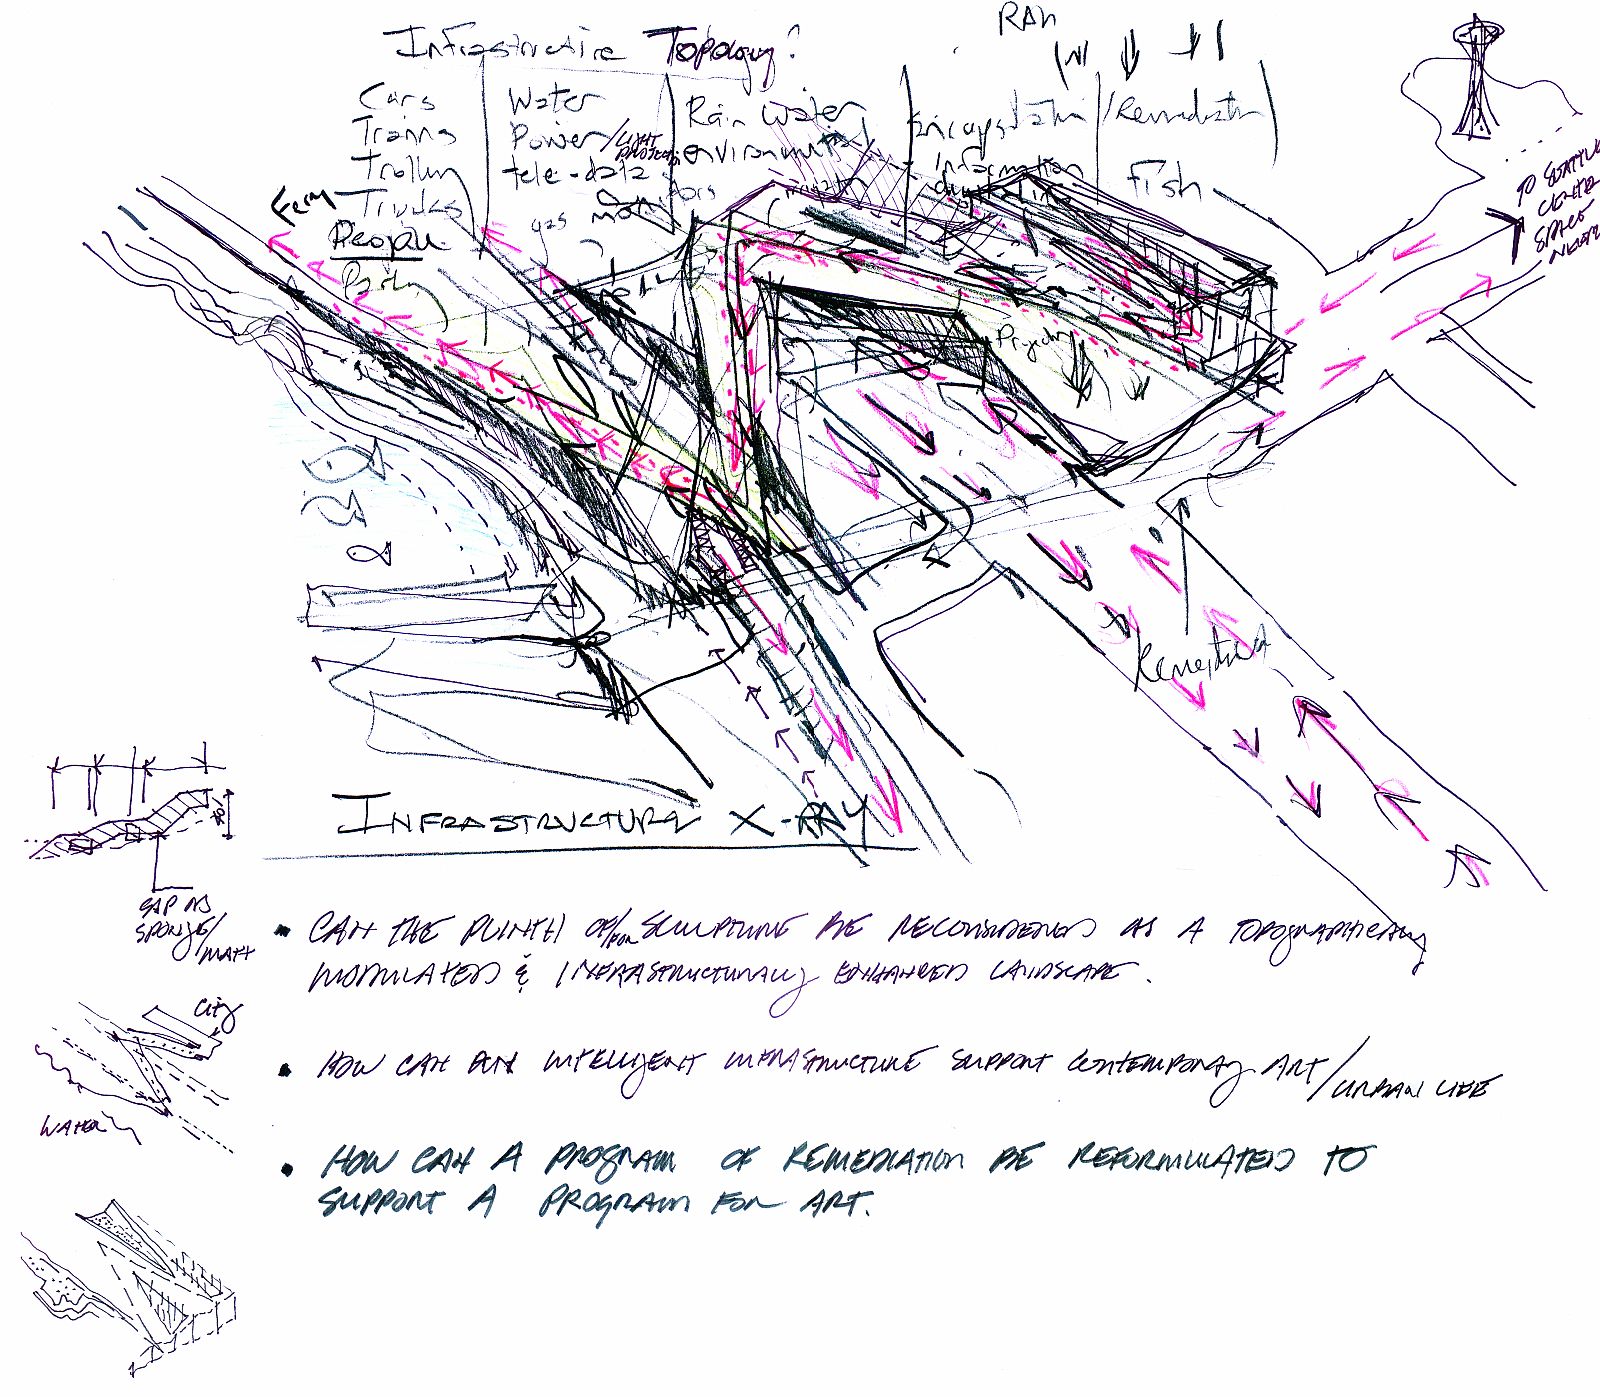 Infrastructure Topology?
RAIN
Cars
Trains
Trolley
Ferry
Trucks
People
Parking
Water
Power/LIGHT
tele-data
gas
Rain Water
environmental
monitors
Encapsulation
information
Remediation
Fish
TO SEATTLE
CENTER
SPACE
NEEDLE
Projection
INFRASTRUCTURE X-RAY
40'
GAP AS
SPONGE/
MATT
• CAN THE PLINTH OF/FOR SCULPTURE BE RECONSIDERED AS A TOPOGRAPHICALLY
MODULATED & INFRASTRUCTURALLY ENHANCED LANDSCAPE.
City
WATER
• HOW CAN AN INTELLIGENT INFRASTRUCTURE SUPPORT CONTEMPORARY ART/URBAN LIFE
• HOW CAN A PROGRAM OF REMEDIATION BE REFORMULATED TO
SUPPORT A PROGRAM FOR ART.